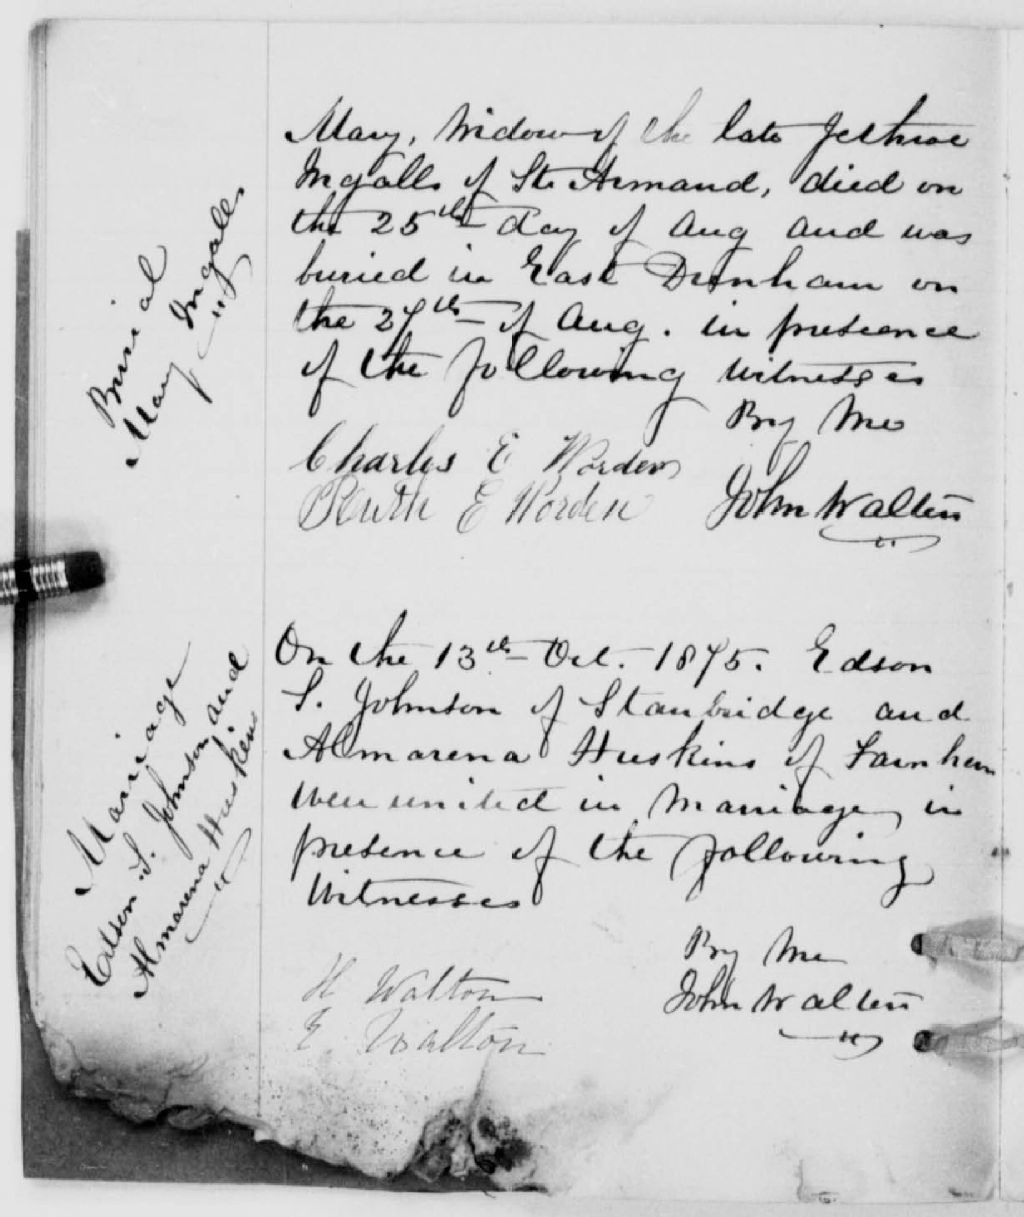 Burial
Mary Ingalls
"
Mary, Widow of the late Jethroe
Ingalls of St. Armand, died on
the 25th day of Aug and was
buried in East Dunham on
the 27th of Aug. in presence
of the following witnesses
By Me
Charles E Worden
E Worden John Walton
"
Marriage
Edson S. Johnson and
Almarena Huskins
"
On the 13th Oct. 1875. Edson
S. Johnson of Stanbridge and
Almarena Huskins of Farnham
were united in Marriage in
presence of the following
Witnesses
By Me
H Walton John Walton
E Walton "